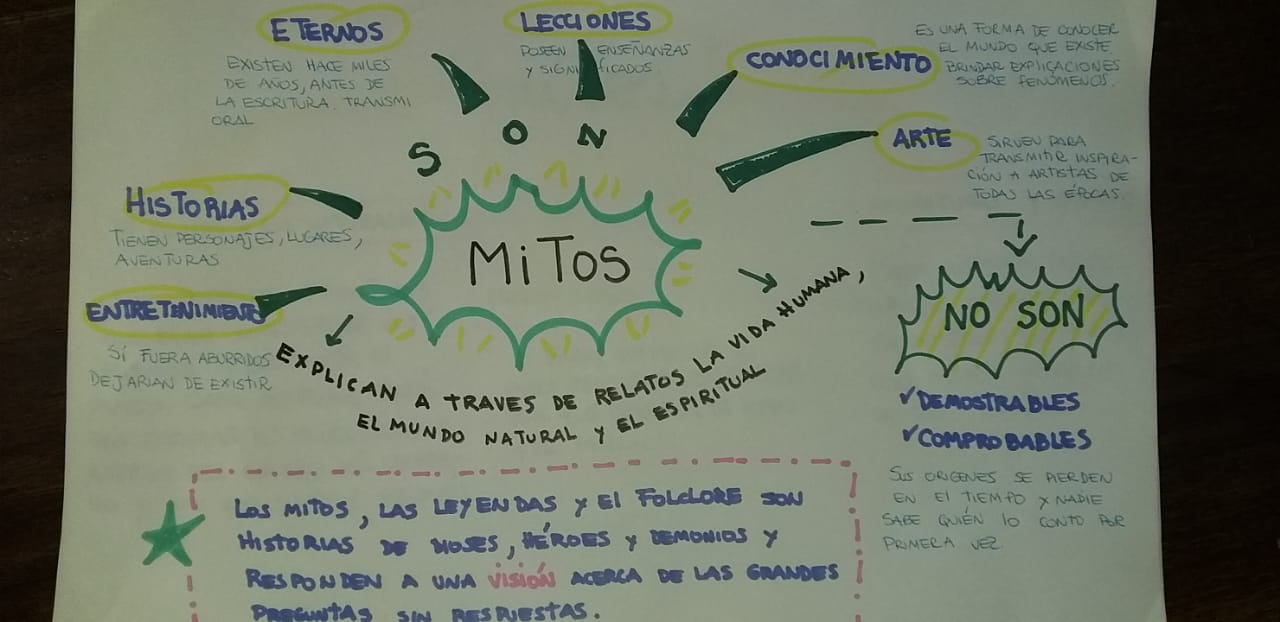 ETERNOS
EXISTEN HACE MILES
DE AÑOS, ANTES DE
LA ESCRITURA. TRANSMI
ORAL
LECCIONES
POSEEN ENSEÑANZAS
Y SIGNIFICADOS
CONOCIMIENTO
ES UNA FORMA DE CONOCER
EL MUNDO QUE EXISTE.
BRINDAR EXPLICACIONES
SOBRE FENÓMENOS.
ARTE
SIRVEN PARA
TRANSMITIR INSPIRA-
CIÓN A ARTISTAS DE
TODAS LAS ÉPOCAS.
HISTORIAS
TIENEN PERSONAJES, LUGARES,
AVENTURAS
ENTRETENIMIENTO
SÍ FUERA ABURRIDOS
DEJARIAN DE EXISTIR
SON
MiTOS
EXPLICAN A TRAVES DE RELATOS LA VIDA HUMANA,
EL MUNDO NATURAL Y EL ESPIRITUAL
NO SON
✓DEMOSTRABLES
✓COMPROBABLES
SUS ORIGENES SE PIERDEN
EN El TIEMPO Y NADIE
SABE QUIÉN lO CONTO POR
PRIMERA VEZ.
LOS MITOS, LAS LEYENDAS Y El FOLCLORE SON
HISTORIAS DE DIOSES, HÉROES Y DEMONIOS Y
RESPONDEN A UNA VISIÓN ACERCA DE LAS GRANDES
PREGUNTAS SIN RESPUESTAS.